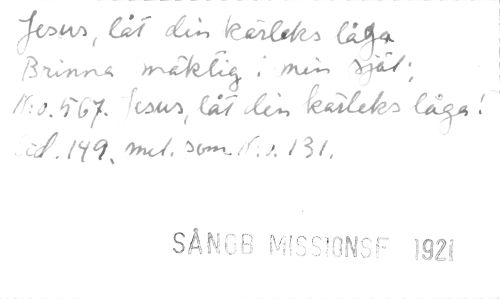 Jesus, låt din kärleks låga
Brinna mäktig i min själ;
N:o. 567. Jesus, låt din kärleks låga!
Sid. 149, mel. som N:o. 131.
SÅNGB MISSIONSF 1921